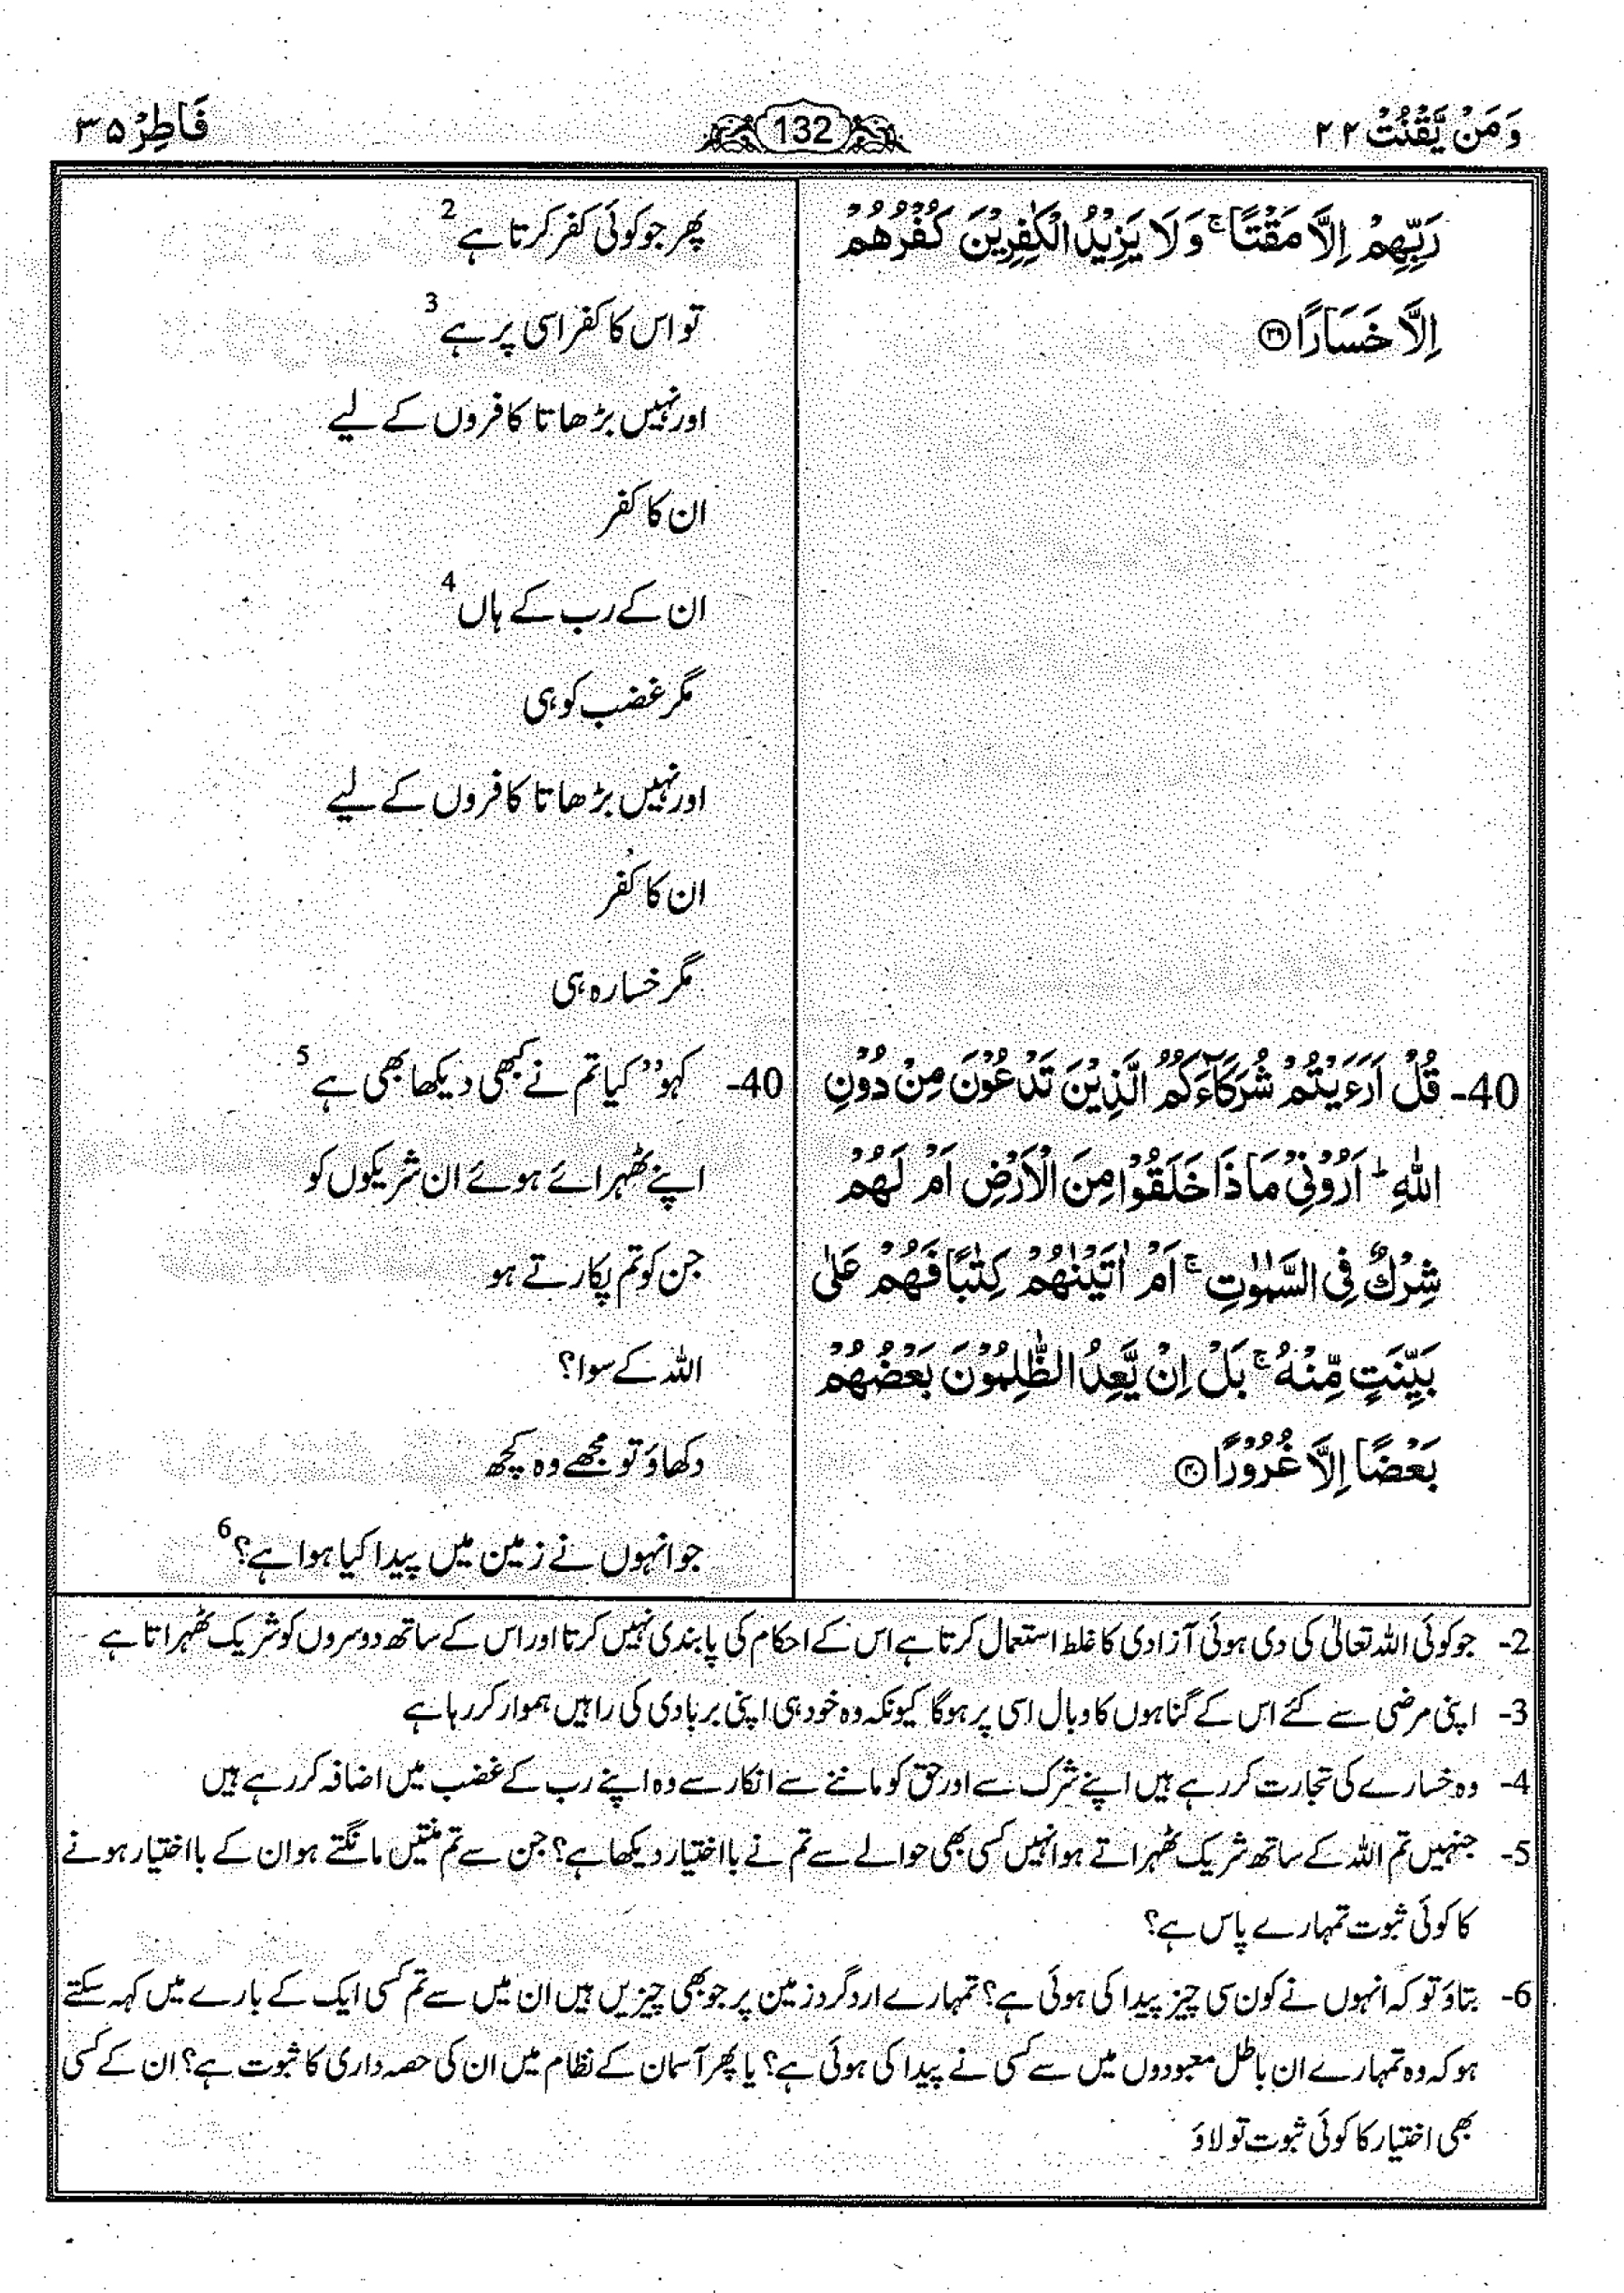 وَمَنْ يَّقْنُتْ ۲۲
132
فَاطِرْ ۳۵
رَبِّهِمْ اِلَّا مَقْتًا ۚ وَلَا يَزِيْدُ الْكٰفِرِيْنَ كُفْرُهُمْ
اِلَّا خَسَارًا ﴿۳۹﴾
40- قُلْ اَرَءَيْتُمْ شُرَكَآءَكُمُ الَّذِيْنَ تَدْعُوْنَ مِنْ دُوْنِ
اللّٰهِ ؕ اَرُوْنِيْ مَاذَا خَلَقُوْا مِنَ الْاَرْضِ اَمْ لَهُمْ
شِرْكٌ فِي السَّمٰوٰتِ ۚ اَمْ اٰتَيْنٰهُمْ كِتٰبًا فَهُمْ عَلٰى
بَيِّنَتٍ مِّنْهُ ۚ بَلْ اِنْ يَّعِدُ الظّٰلِمُوْنَ بَعْضُهُمْ
بَعْضًا اِلَّا غُرُوْرًا ﴿۴۰﴾
پھر جو کوئی کفر کرتا ہے 2
تو اس کا کفر اسی پر ہے 3
اور نہیں بڑھاتا کافروں کے لیے
ان کا کفر
ان کے رب کے ہاں 4
مگر غضب کو ہی
اور نہیں بڑھاتا کافروں کے لیے
ان کا کفر
مگر خسارہ ہی
40- کہو ”کیا تم نے کبھی دیکھا بھی ہے 5
اپنے ٹھہرائے ہوئے ان شریکوں کو
جن کو تم پکارتے ہو
اللہ کے سوا؟
دکھاؤ تو مجھے وہ کچھ
جو انہوں نے زمین میں پیدا کیا ہوا ہے؟ 6
2- جو کوئی اللہ تعالیٰ کی دی ہوئی آزادی کا غلط استعمال کرتا ہے اس کے احکام کی پابندی نہیں کرتا اور اس کے ساتھ دوسروں کو شریک ٹھہراتا ہے
3- اپنی مرضی سے کئے اس کے گناہوں کا وبال اسی پر ہو گا کیونکہ وہ خود ہی اپنی بربادی کی راہیں ہموار کر رہا ہے
4- وہ خسارے کی تجارت کر رہے ہیں اپنے شرک سے اور حق کو ماننے سے انکار سے وہ اپنے رب کے غضب میں اضافہ کر رہے ہیں
5- جنہیں تم اللہ کے ساتھ شریک ٹھہراتے ہو انہیں کسی بھی حوالے سے تم نے با اختیار دیکھا ہے؟ جن سے تم منتیں مانگتے ہو ان کے با اختیار ہونے
کا کوئی ثبوت تمہارے پاس ہے؟
6- بتاؤ تو کہ انہوں نے کون سی چیز پیدا کی ہوئی ہے؟ تمہارے ارد گرد زمین پر جو بھی چیزیں ہیں ان میں سے تم کسی ایک کے بارے میں کہہ سکتے
ہو کہ وہ تمہارے ان باطل معبودوں میں سے کسی نے پیدا کی ہوئی ہے؟ یا پھر آسمان کے نظام میں ان کی حصہ داری کا ثبوت ہے؟ ان کے کسی
بھی اختیار کا کوئی ثبوت تو لاؤ